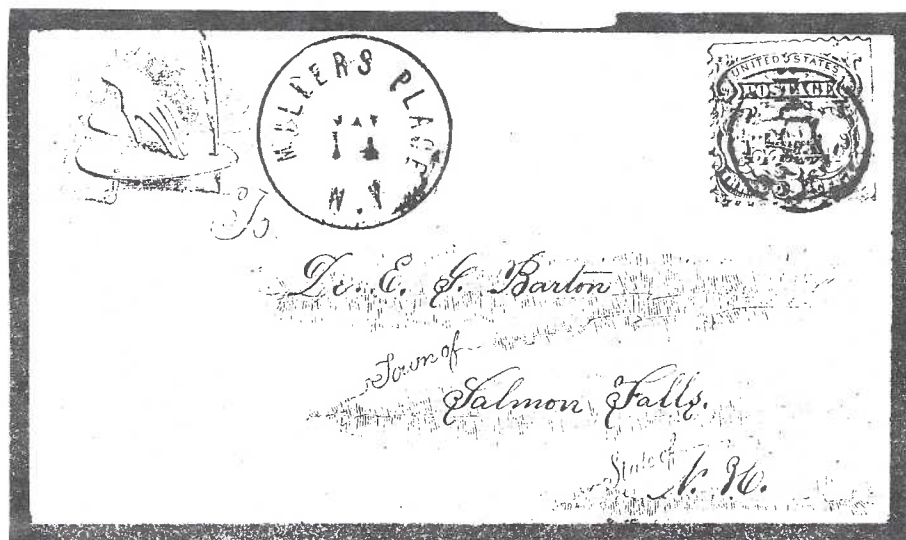 MILLERS PLACE
14
N.Y
UNITED STATES
POSTAGE
To
Dr. E. G. Barton
Town of
Salmon Falls.
State of
N. H.